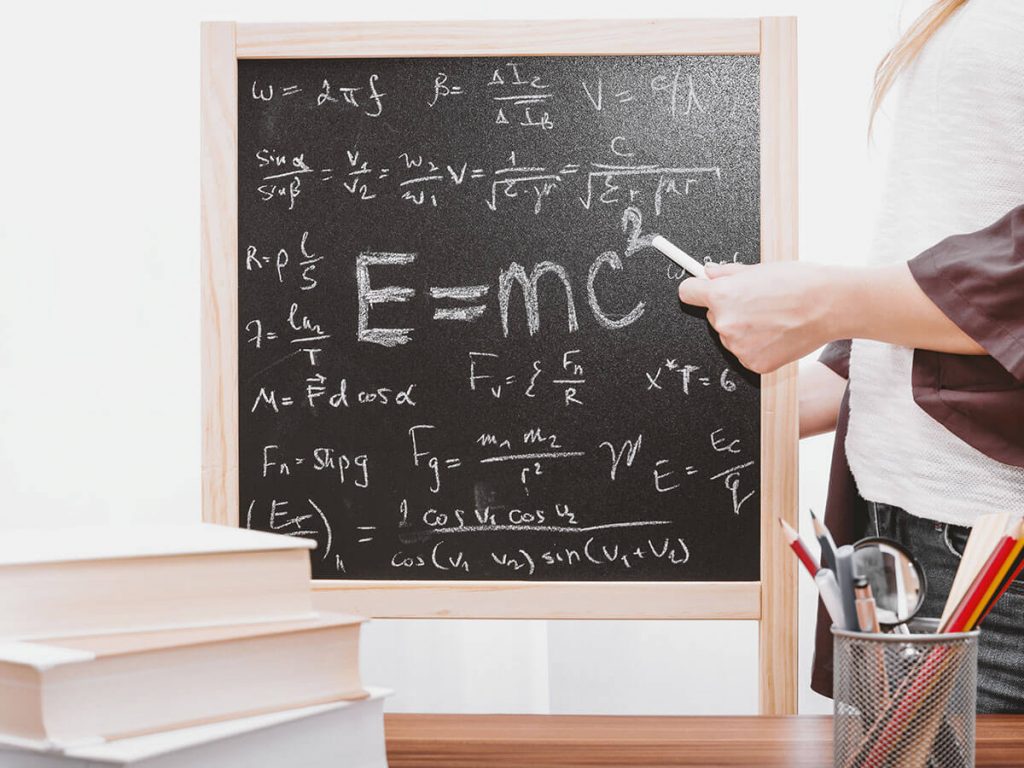 ω = 2πf β = ΔI₂/ΔI_B V = c/λ
sin α/sin β = v₁/v₂ = w₂/w₁ V = 1/√(ε·μ) = C/√(εr μr)
R = ρ l/S
E = mc²
ln₂/T
F_v = { F_n/R x*T = 6
M = F⃗ d cos α
F_n = Shρg F_g = m₁ m₂/r² M E = E_c/q
(E_r)_∥ = 1 cos v₁ cos v₂/cos(v₁ v₂) sin(v₁+v₂)